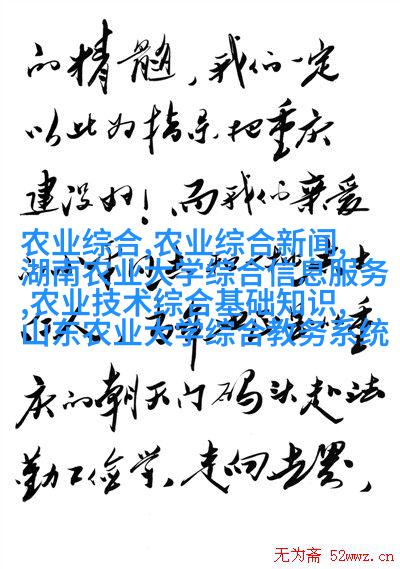 的精髓，我们一定
以此为指导把重庆
建设好！而我们亲爱
农业综合,农业综合新闻,
湖南农业大学综合信息服务
,农业技术综合基础知识,
山东农业大学综合教务系统
庆的朝天门码头赴法
勤工俭学，走向世界，
无为斋 52wwz.cn